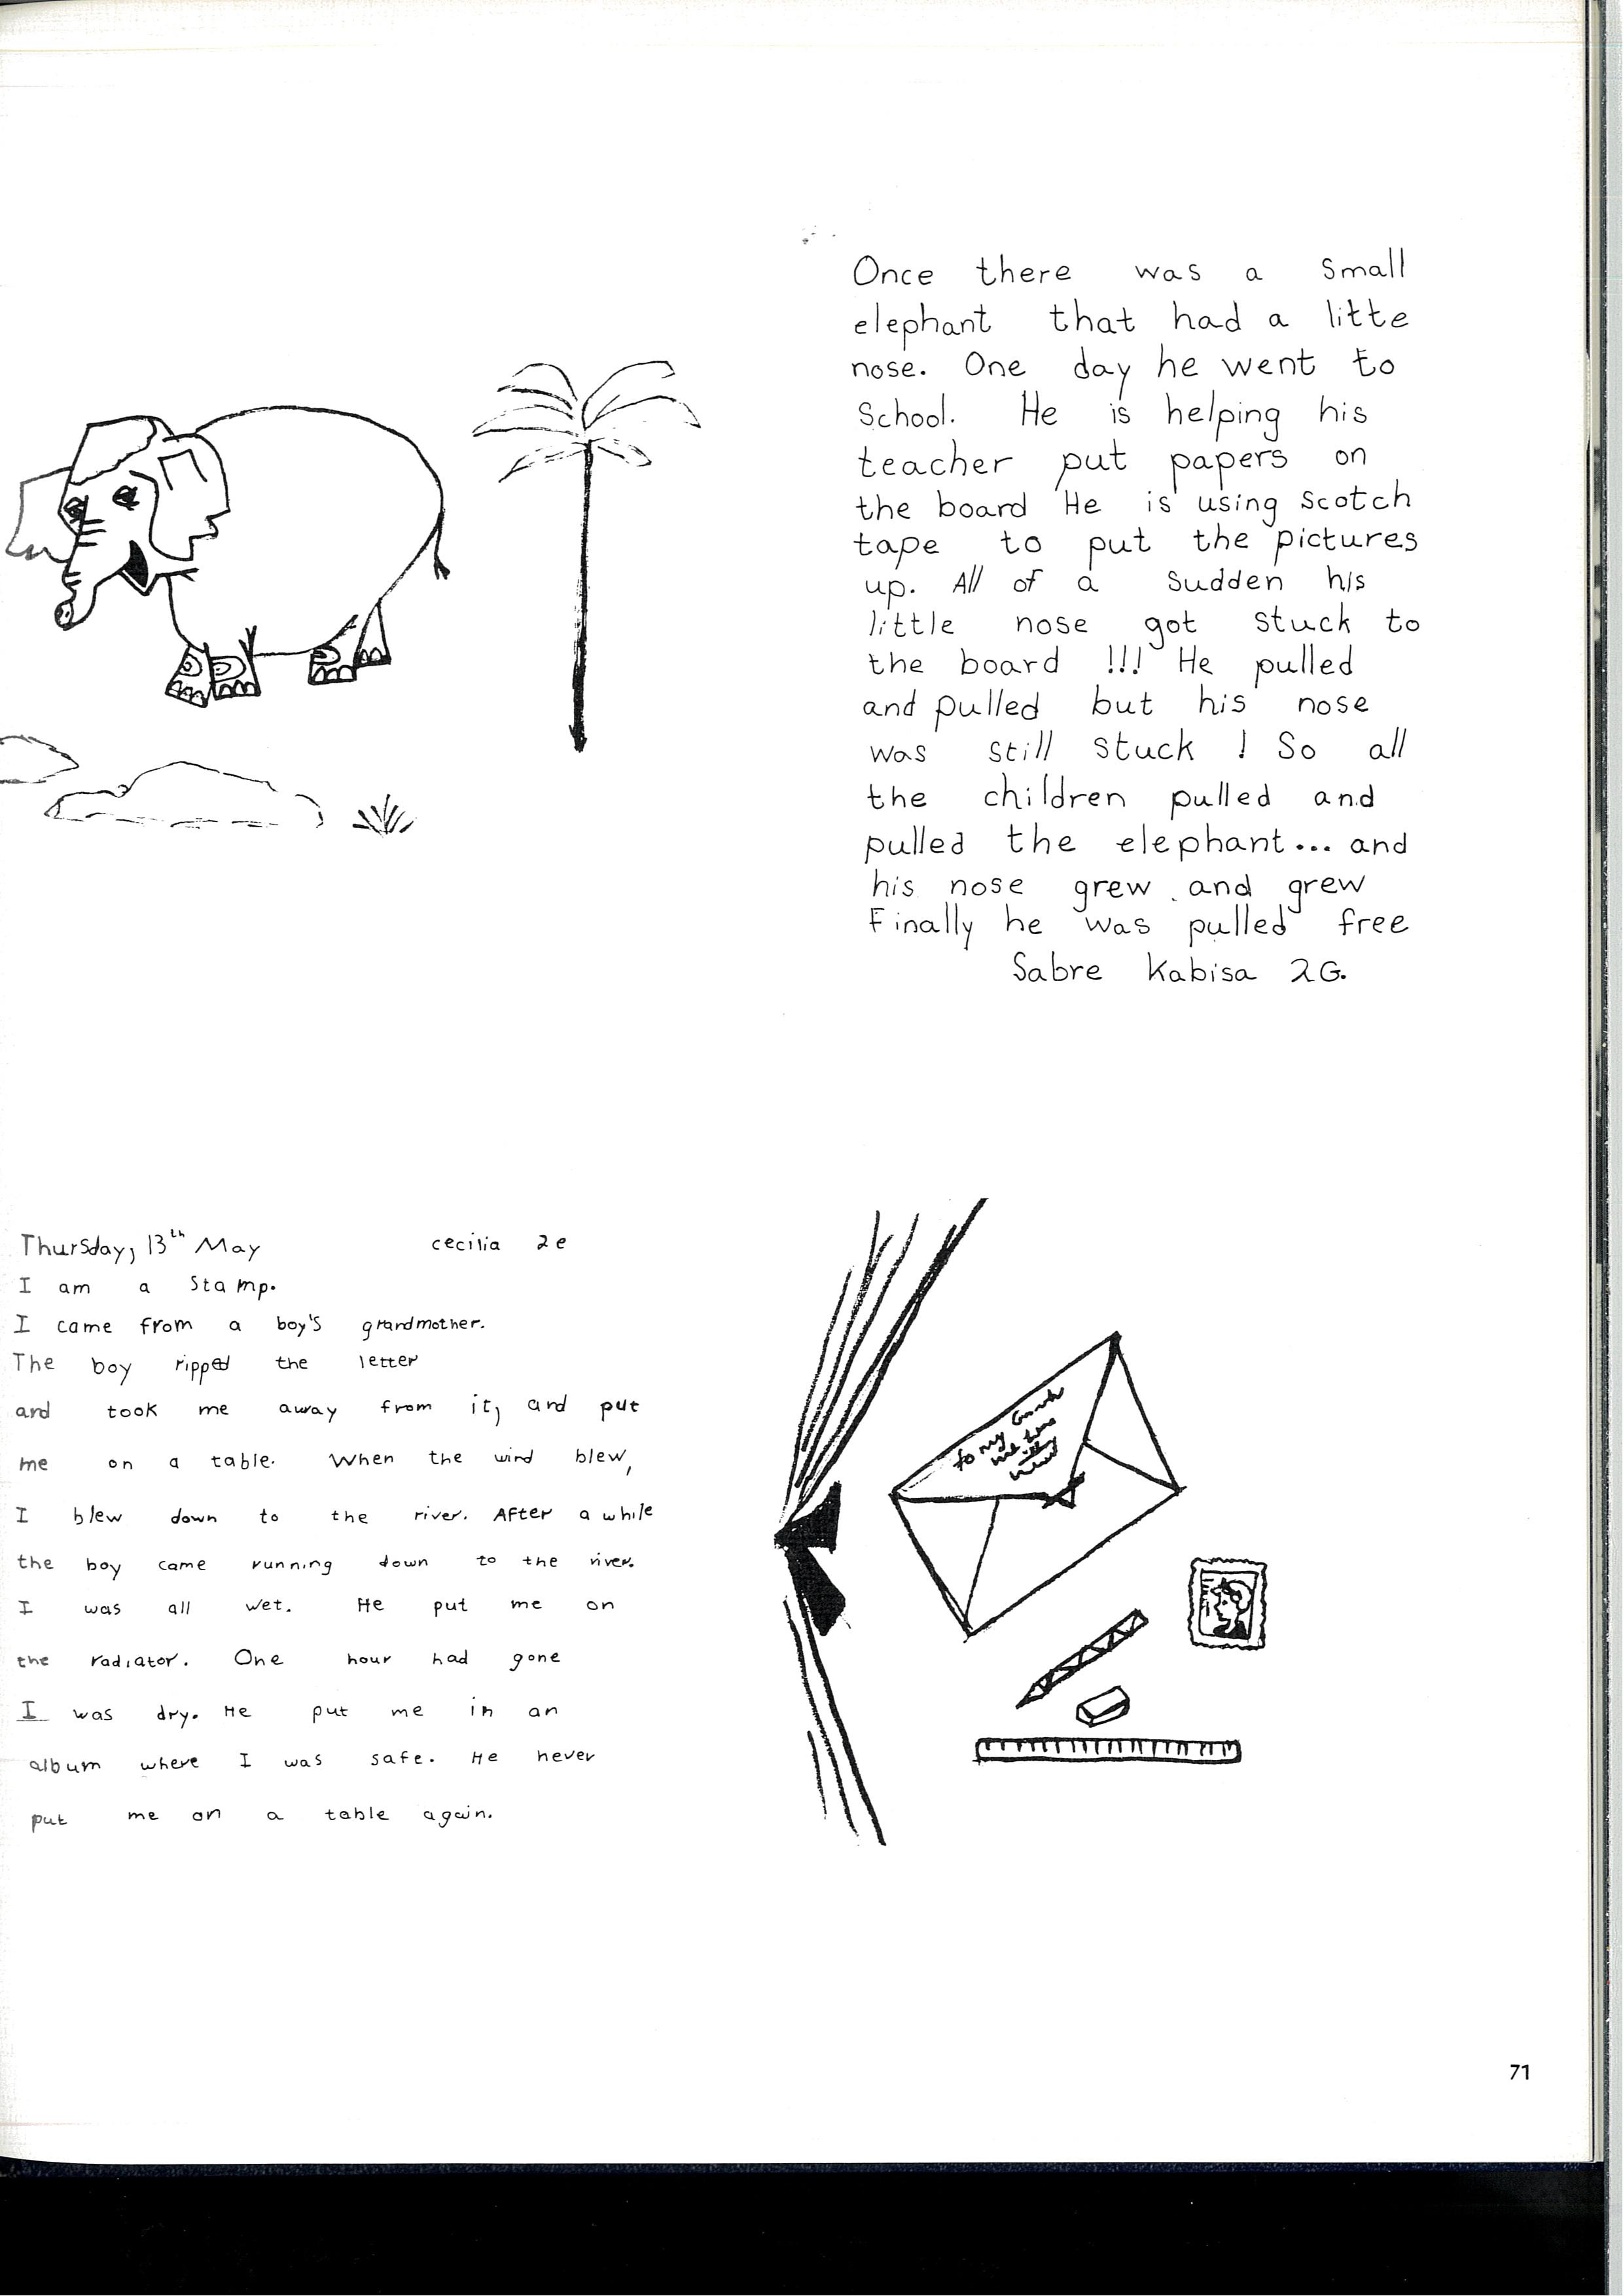 Once there was a small
elephant that had a litte
nose. One day he went to
School. He is helping his
teacher put papers on
the board He is using scotch
tape to put the pictures
up. All of a sudden his
little nose got stuck to
the board !!! He pulled
and pulled but his nose
was still stuck ! So all
the children pulled and
pulled the elephant... and
his nose grew and grew
Finally he was pulled free
Sabre Kabisa 2G.
Thursday, 13th May cecilia 2e
I am a stamp.
I came from a boy's grandmother.
The boy ripped the letter
and took me away from it, and put
me on a table. When the wind blew,
I blew down to the river. After a while
the boy came running down to the river.
I was all wet. He put me on
the radiator. One hour had gone
I was dry. He put me in an
album where I was safe. He never
put me on a table again.
to my
71